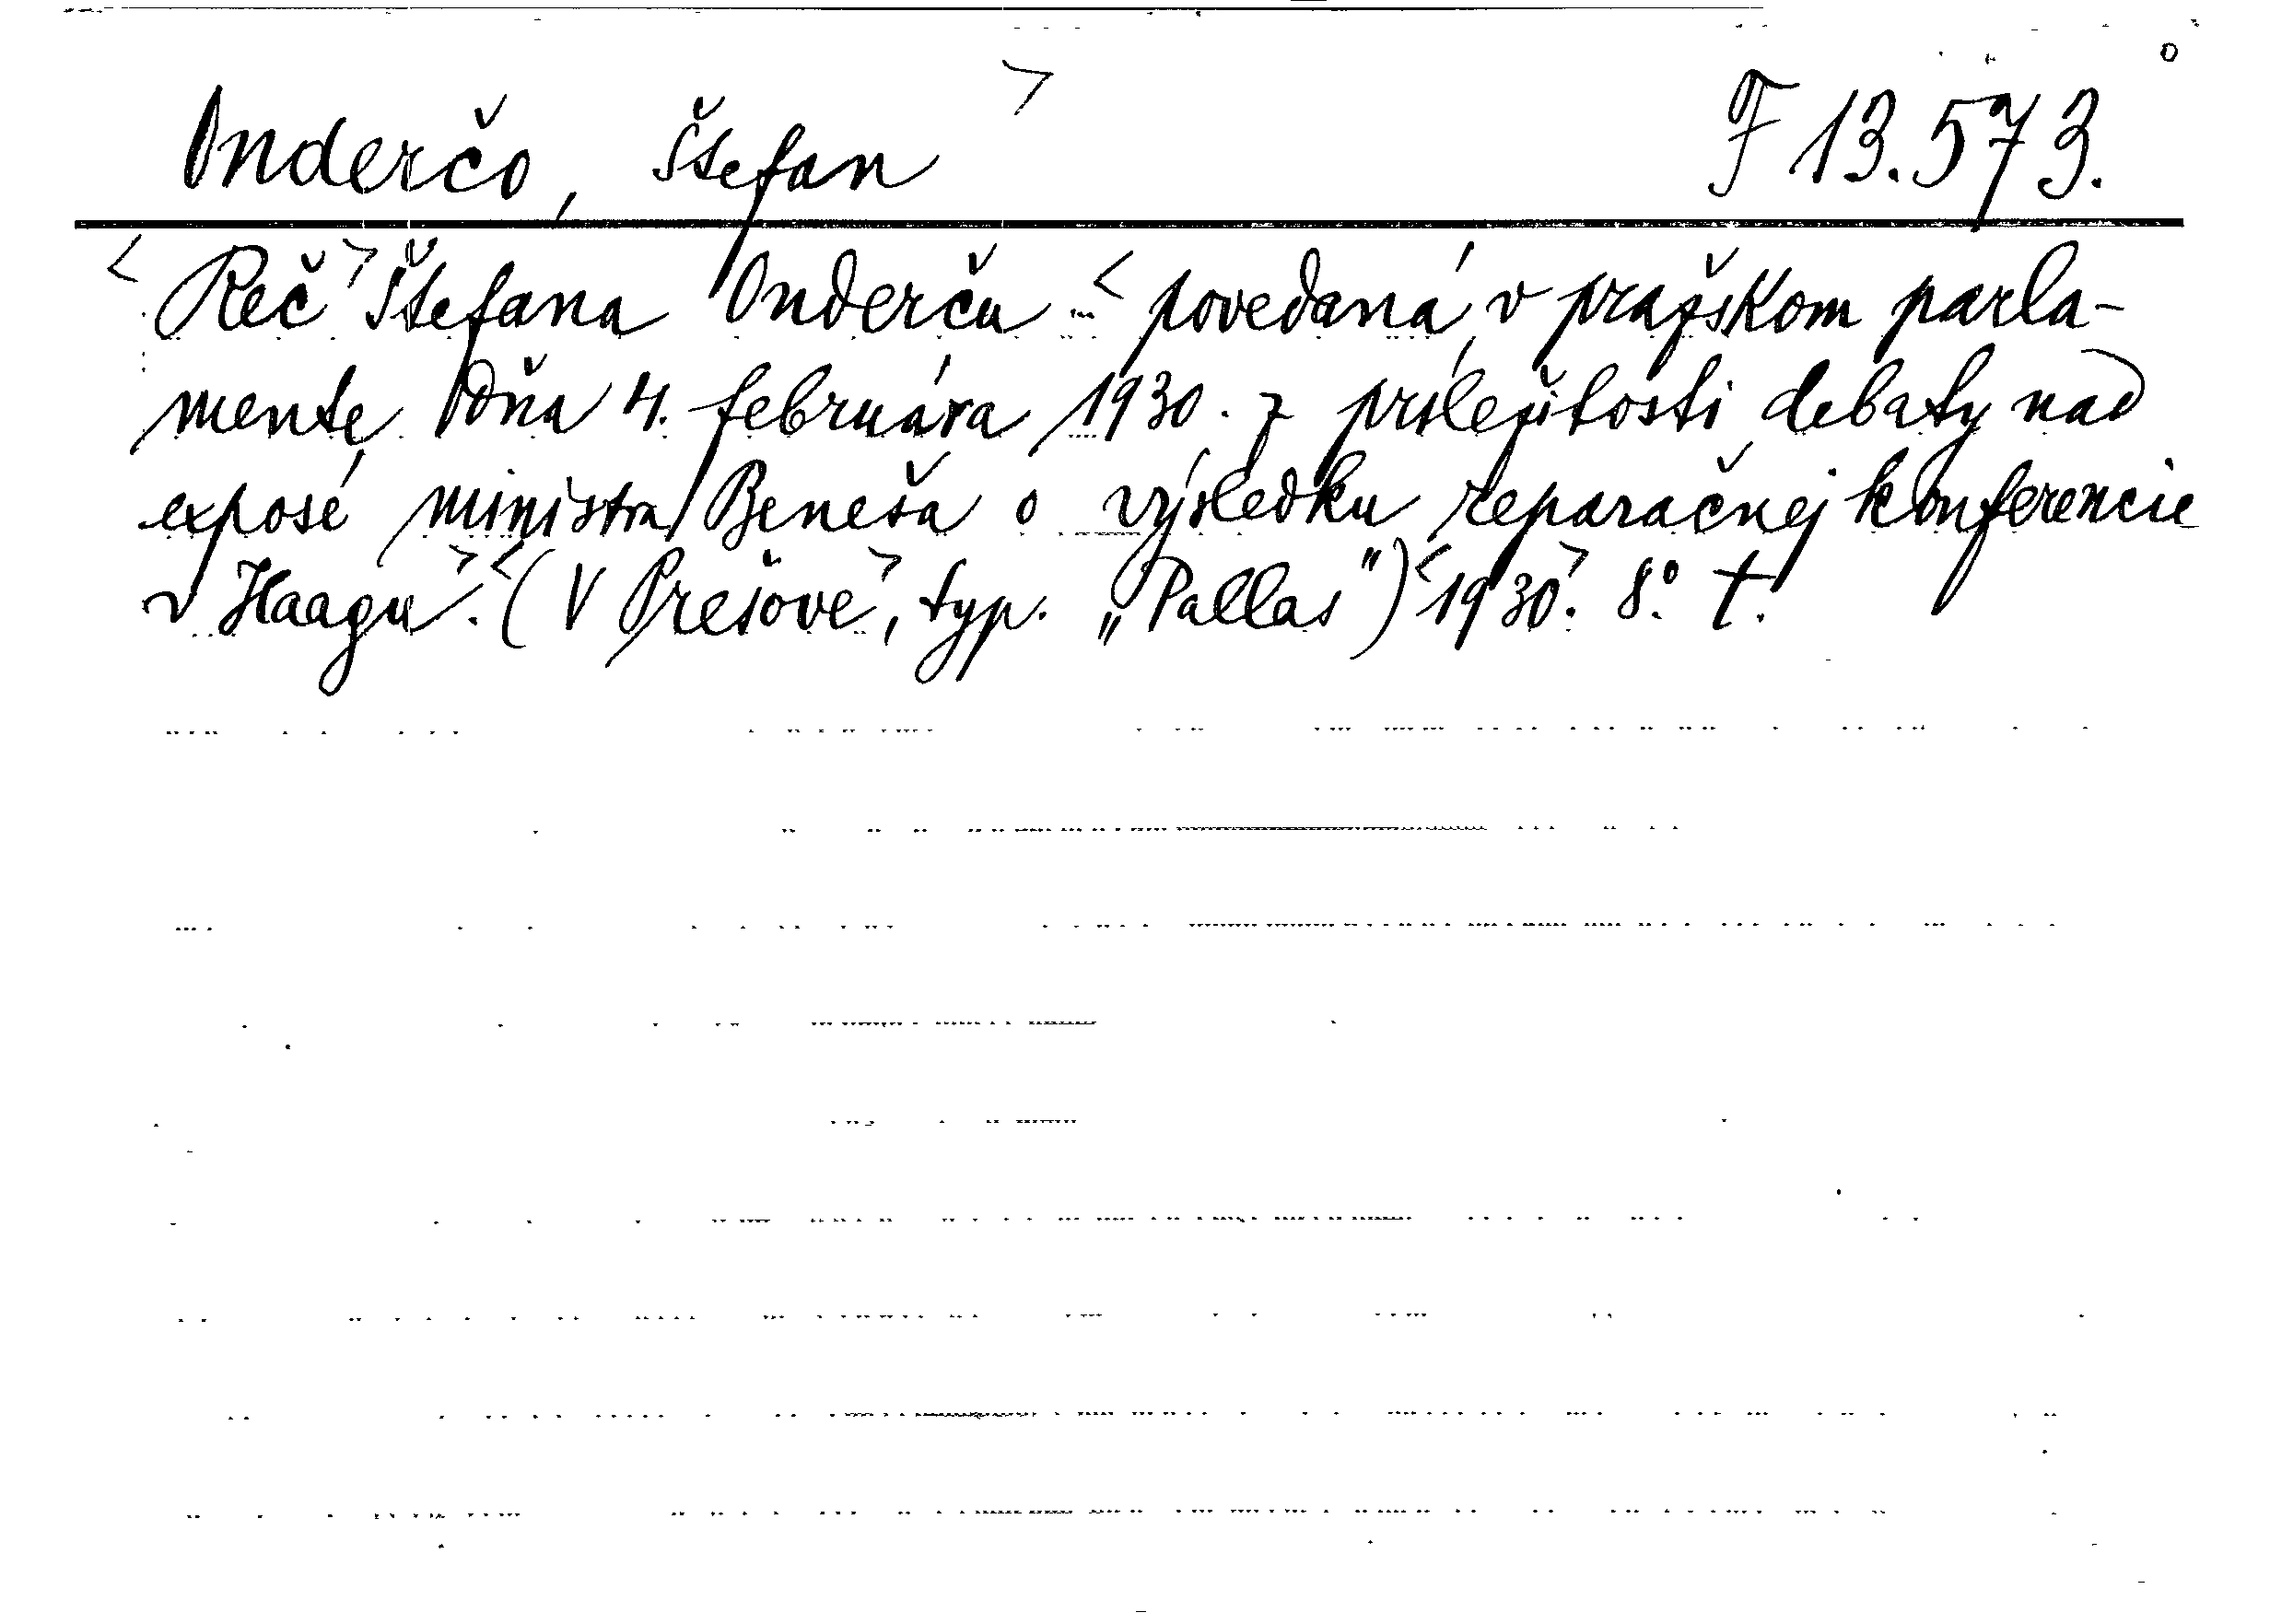 Onderčo, Štefan > F 13.573.
< Reč > Štefana Onderču ... < povedaná v pražskom parla-
mente dňa 4. februára 1930. z príležitosti debaty nad
exposé ministra Beneša o výsledku reparačnej konferencie
v Haagu >. < (V Prešove >, typ. „Pallas") < 1930 >. 8°. †.